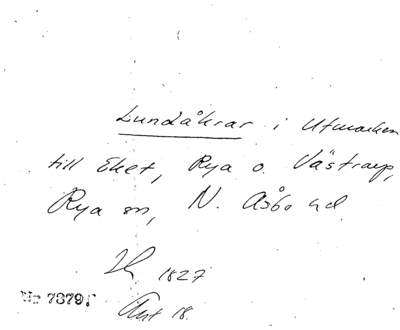 Lundåkrar i Utmarken
till Eket, Rya o. Västrarp,
Rya sn, N. Åsbo hd.
1827
No 7379
Akt 18.